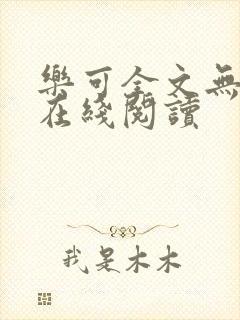 樂可全文無
在綫閱讀
我是木木